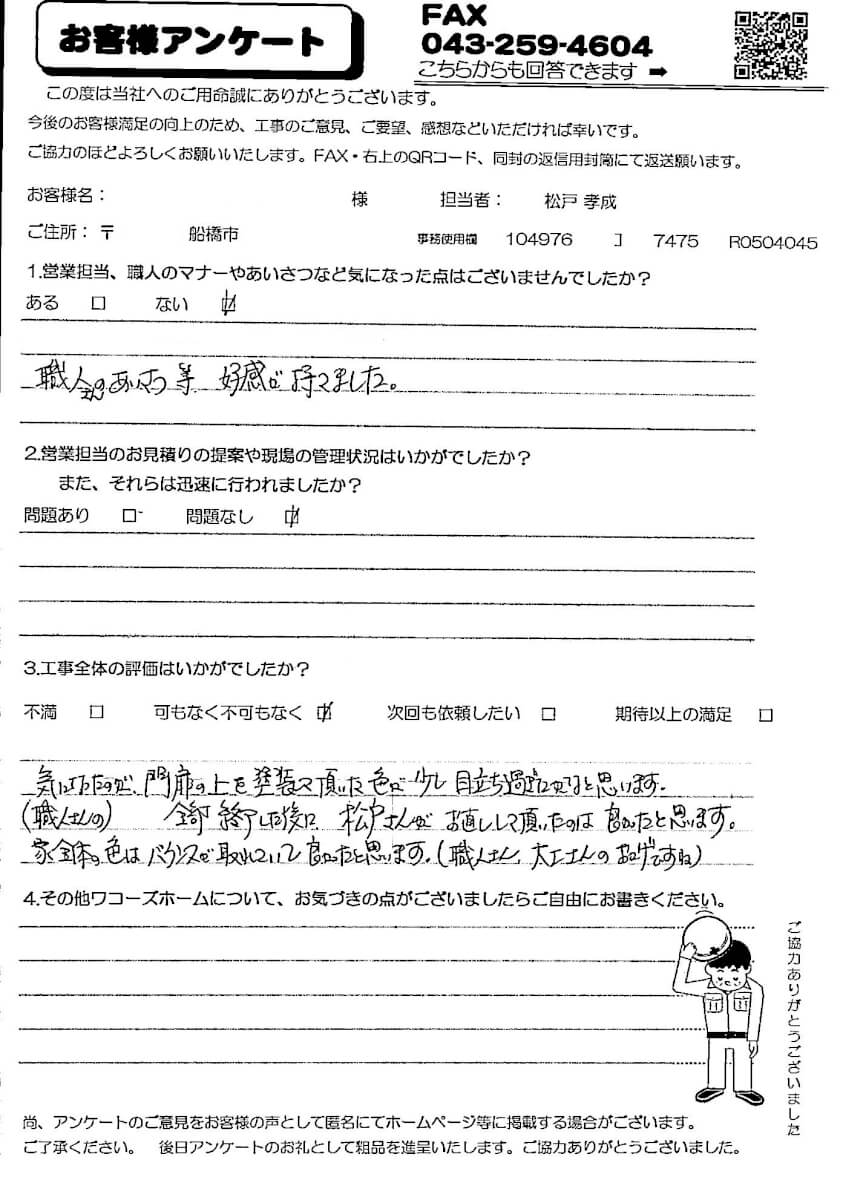 お客様アンケート
FAX
043-259-4604
こちらからも回答できます ➡
この度は当社へのご用命誠にありがとうございます。
今後のお客様満足の向上のため、工事のご意見、ご要望、感想などいただければ幸いです。
ご協力のほどよろしくお願いいたします。FAX・右上のQRコード、同封の返信用封筒にて返送願います。
お客様名： 様 担当者： 松戸 孝成
ご住所：〒 船橋市 事務使用欄 104976 J 7475 R0504045
1.営業担当、職人のマナーやあいさつなど気になった点はございませんでしたか？
ある □ ない ☑
職人さんのあいさつ等 好感が持てました。
2.営業担当のお見積りの提案や現場の管理状況はいかがでしたか？
また、それらは迅速に行われましたか？
問題あり □ 問題なし ☑
3.工事全体の評価はいかがでしたか？
不満 □ 可もなく不可もなく ☑ 次回も依頼したい □ 期待以上の満足 □
気になったのが、門扉の上を塗装して頂いた色が少し目立ち過ぎると思います。
(職人さんの) 全部終了した後に 松戸さんが お直しして頂いたのは 良かったと思います。
家全体の色は バランスが取れていて 良かったと思います。(職人さん、大工さんのおかげですね)
4.その他ワコーズホームについて、お気づきの点がございましたらご自由にお書きください。
ご協力ありがとうございました
尚、アンケートのご意見をお客様の声として匿名にてホームページ等に掲載する場合がございます。
ご了承ください。 後日アンケートのお礼として粗品を進呈いたします。ご協力ありがとうございました。